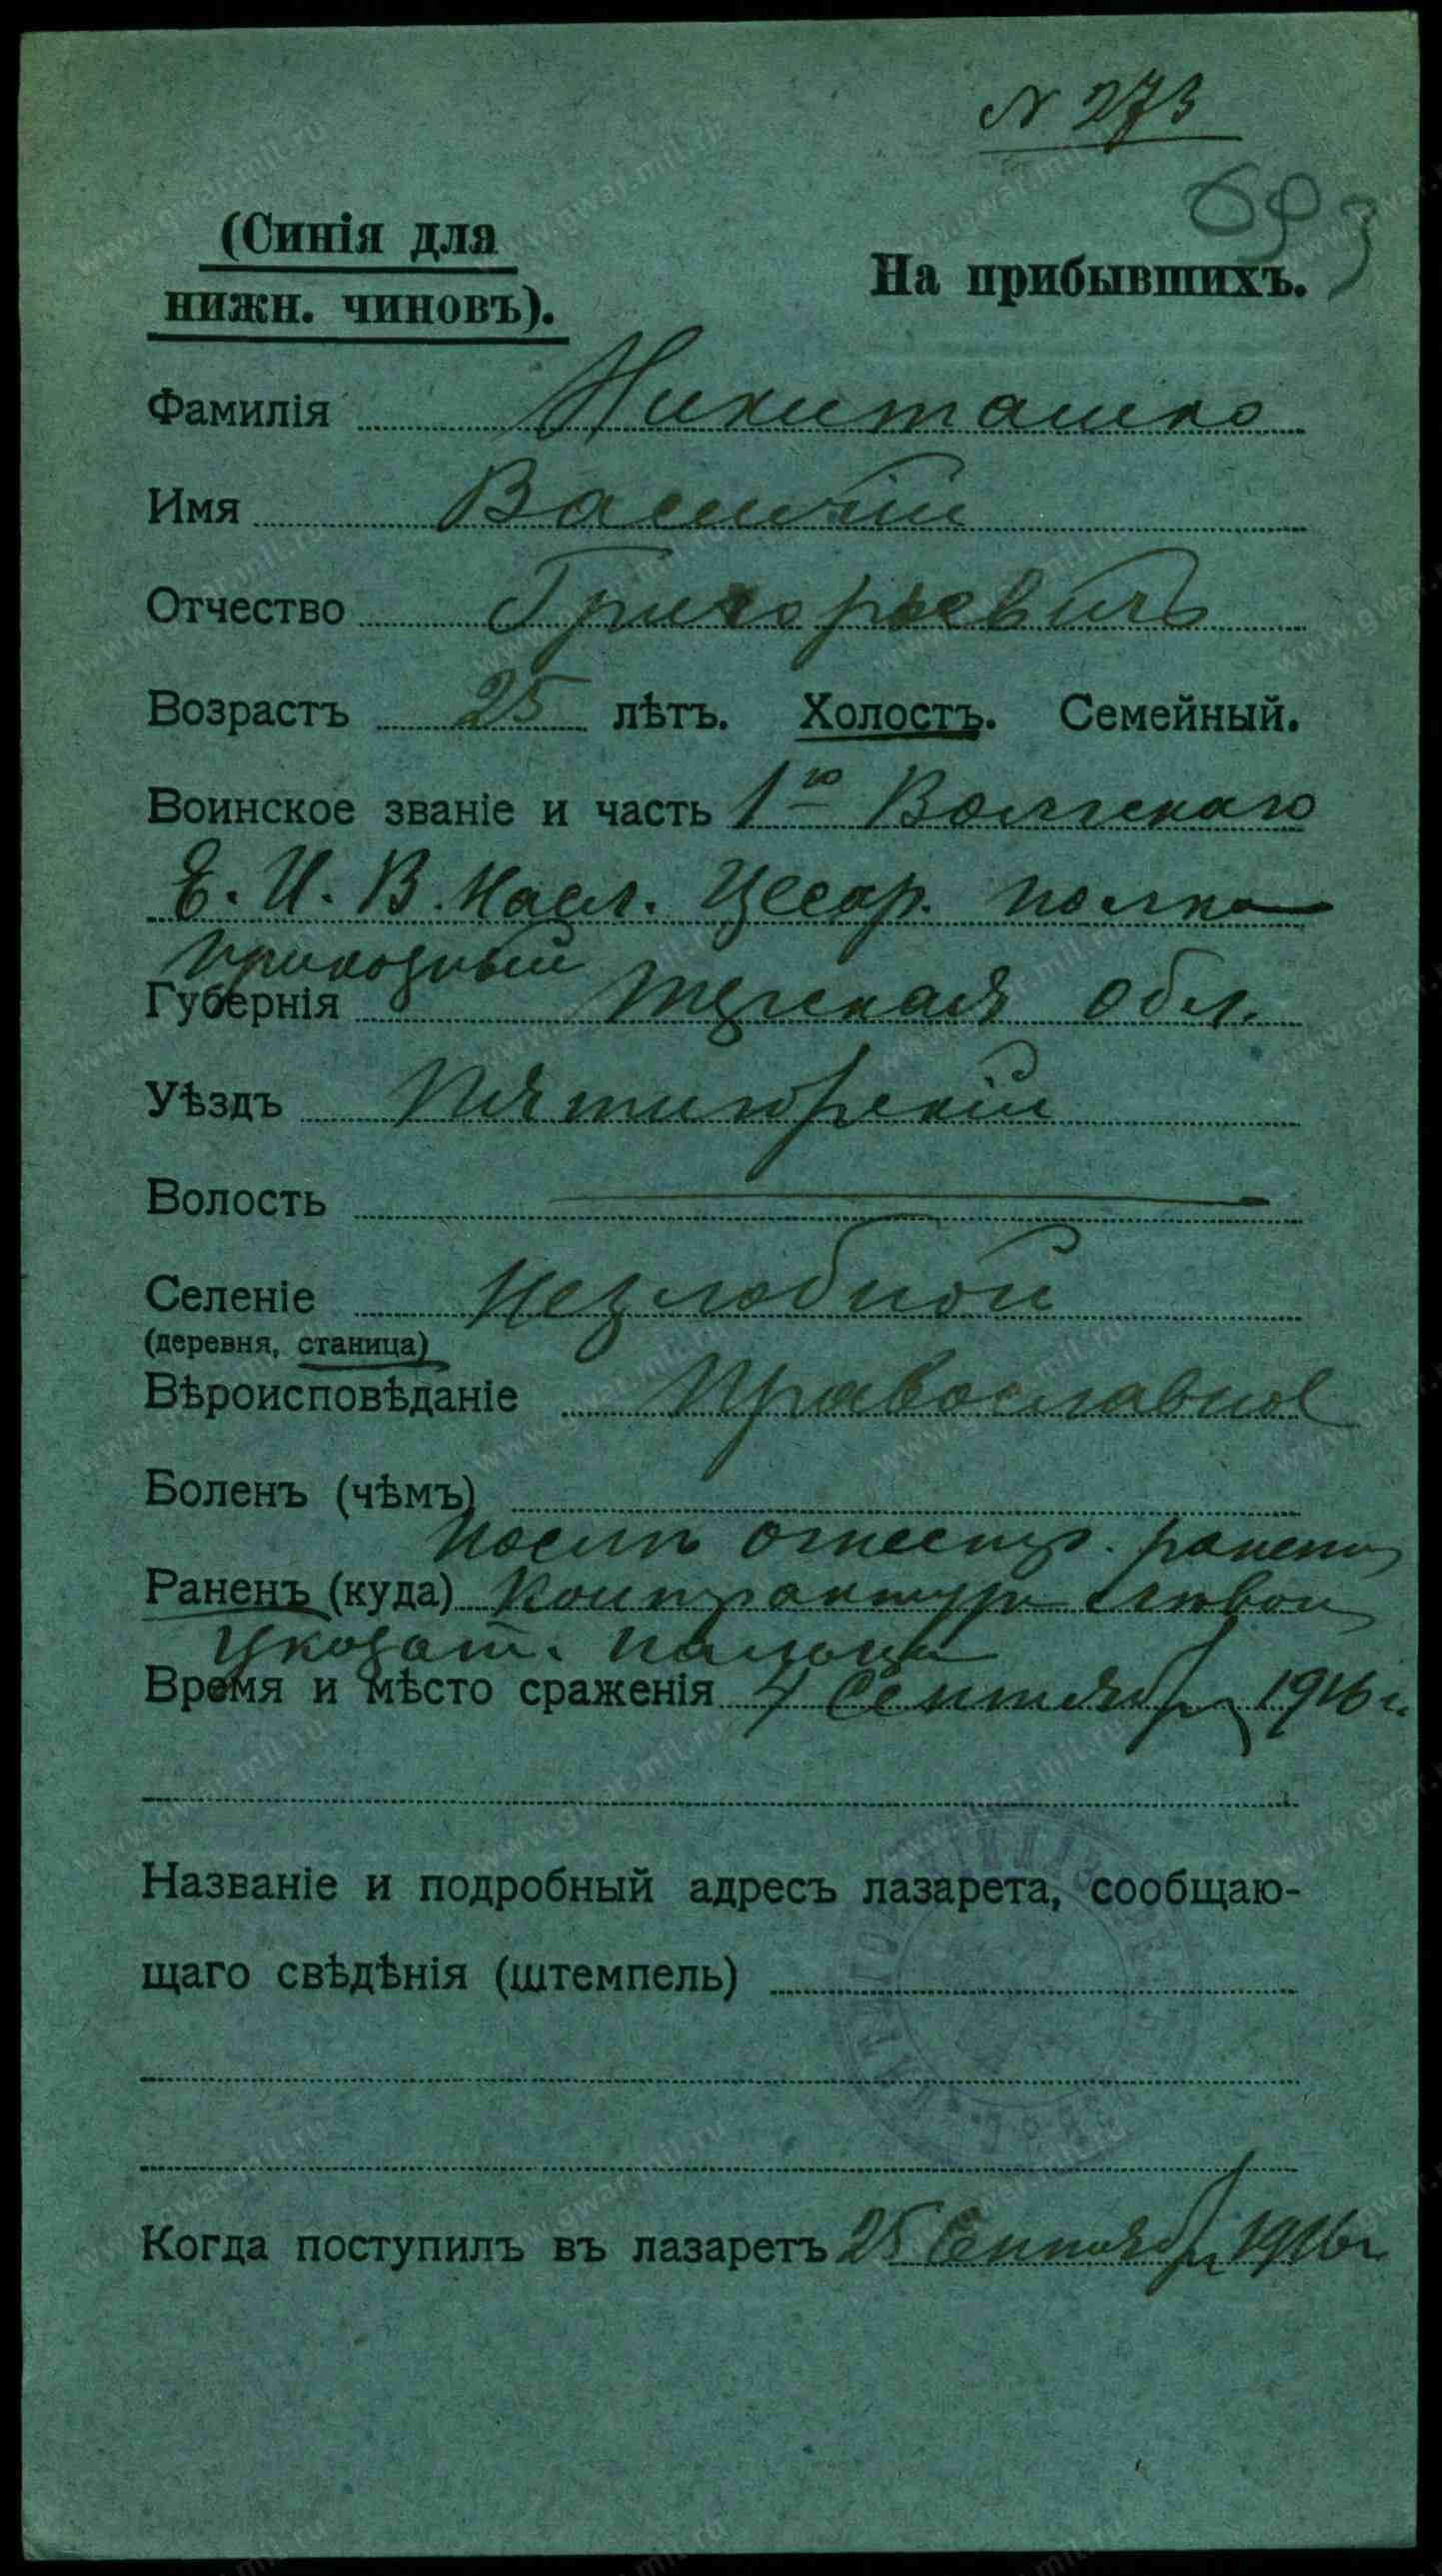 N 273
693
(Синія для
нижн. чиновъ).
На прибывшихъ.
Фамилія Никиташко
Имя Василій
Отчество Григорьевичъ
Возрастъ 25 лѣтъ. Холостъ. Семейный.
Воинское званіе и часть 1го Волгскаго
Е. И. В. Насл. Цесар. полка
приказный
Губернія Терская обл.
Уѣздъ Пятигорскій
Волость
Селеніе Незлобной
(деревня, станица)
Вѣроисповѣданіе Православное
Боленъ (чѣмъ)
Послѣ огнестр. ранены
Раненъ (куда) контрактура лѣвой
указат. пальца
Время и мѣсто сраженія 4 Сентября 1916 г.
Названіе и подробный адресъ лазарета, сообщаю-
щаго свѣдѣнія (штемпель)
Когда поступилъ въ лазаретъ 25 Сентября 1916 г.